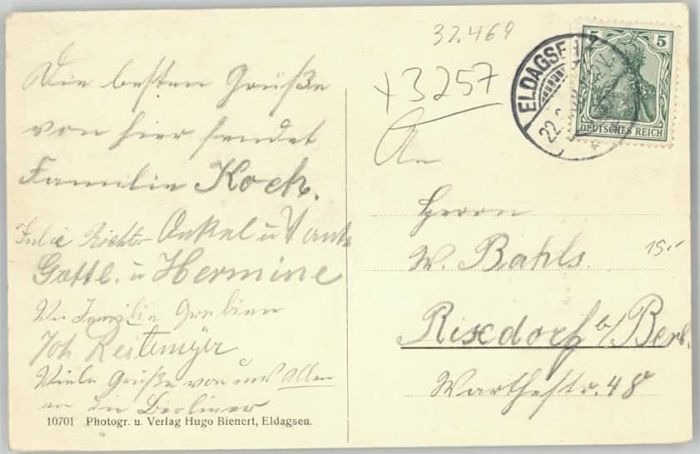 32.469
+3257
Die besten Grüße
von hier sendet
Familie Koch.
Julie Richter Onkel u Tante
Gottl. u Hermine
Familie
Joh Reitemyer
Viele Grüße von uns Allen
an die Berliner
10701 Photogr. u. Verlag Hugo Bienert, Eldagsen.
ELDAGSE
22.
5 5
DEUTSCHES REICH
An
Herrn
W. Bahls.
15.-
Rixdorf b/Berl.
Warthestr. 48